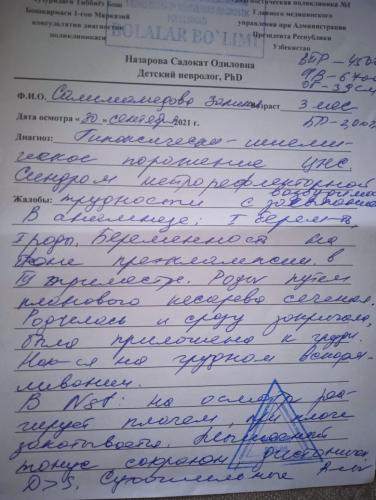 Тиббиёт Бош
Бошкармаси 1-сон Марказий
консультатив диагностик
поликлиникаси
поликлиника №1
Главного медицинского
управления при Администрации
Президента Республики
Узбекистан
BOLALAR BO'LIMI
Назарова Садокат Одиловна
Детский невролог, PhD
Ф.И.О. возраст 3 мес
Дата осмотра «30» сентяб 2021 г.
Диагноз: Гипоксически-ишеми-
ческое поражение ЦНС.
Синдром нервнорефлекторной возбудимо
Жалобы: трудности с
В анамнезе: I берем-ть,
I роды. Беременность на
фоне преэклампсии в
III триместре. Роды путем
планового кесарева сечения.
Родилась и сразу закричала,
была приложена к груди.
Нах-ся на грудном вскарм-
ливании.
В NSt: на осмотр реа-
гирует плачем, при плаче
закатывается. Мышечный
тонус сохранен дистоничен
D>S. Сухожильные